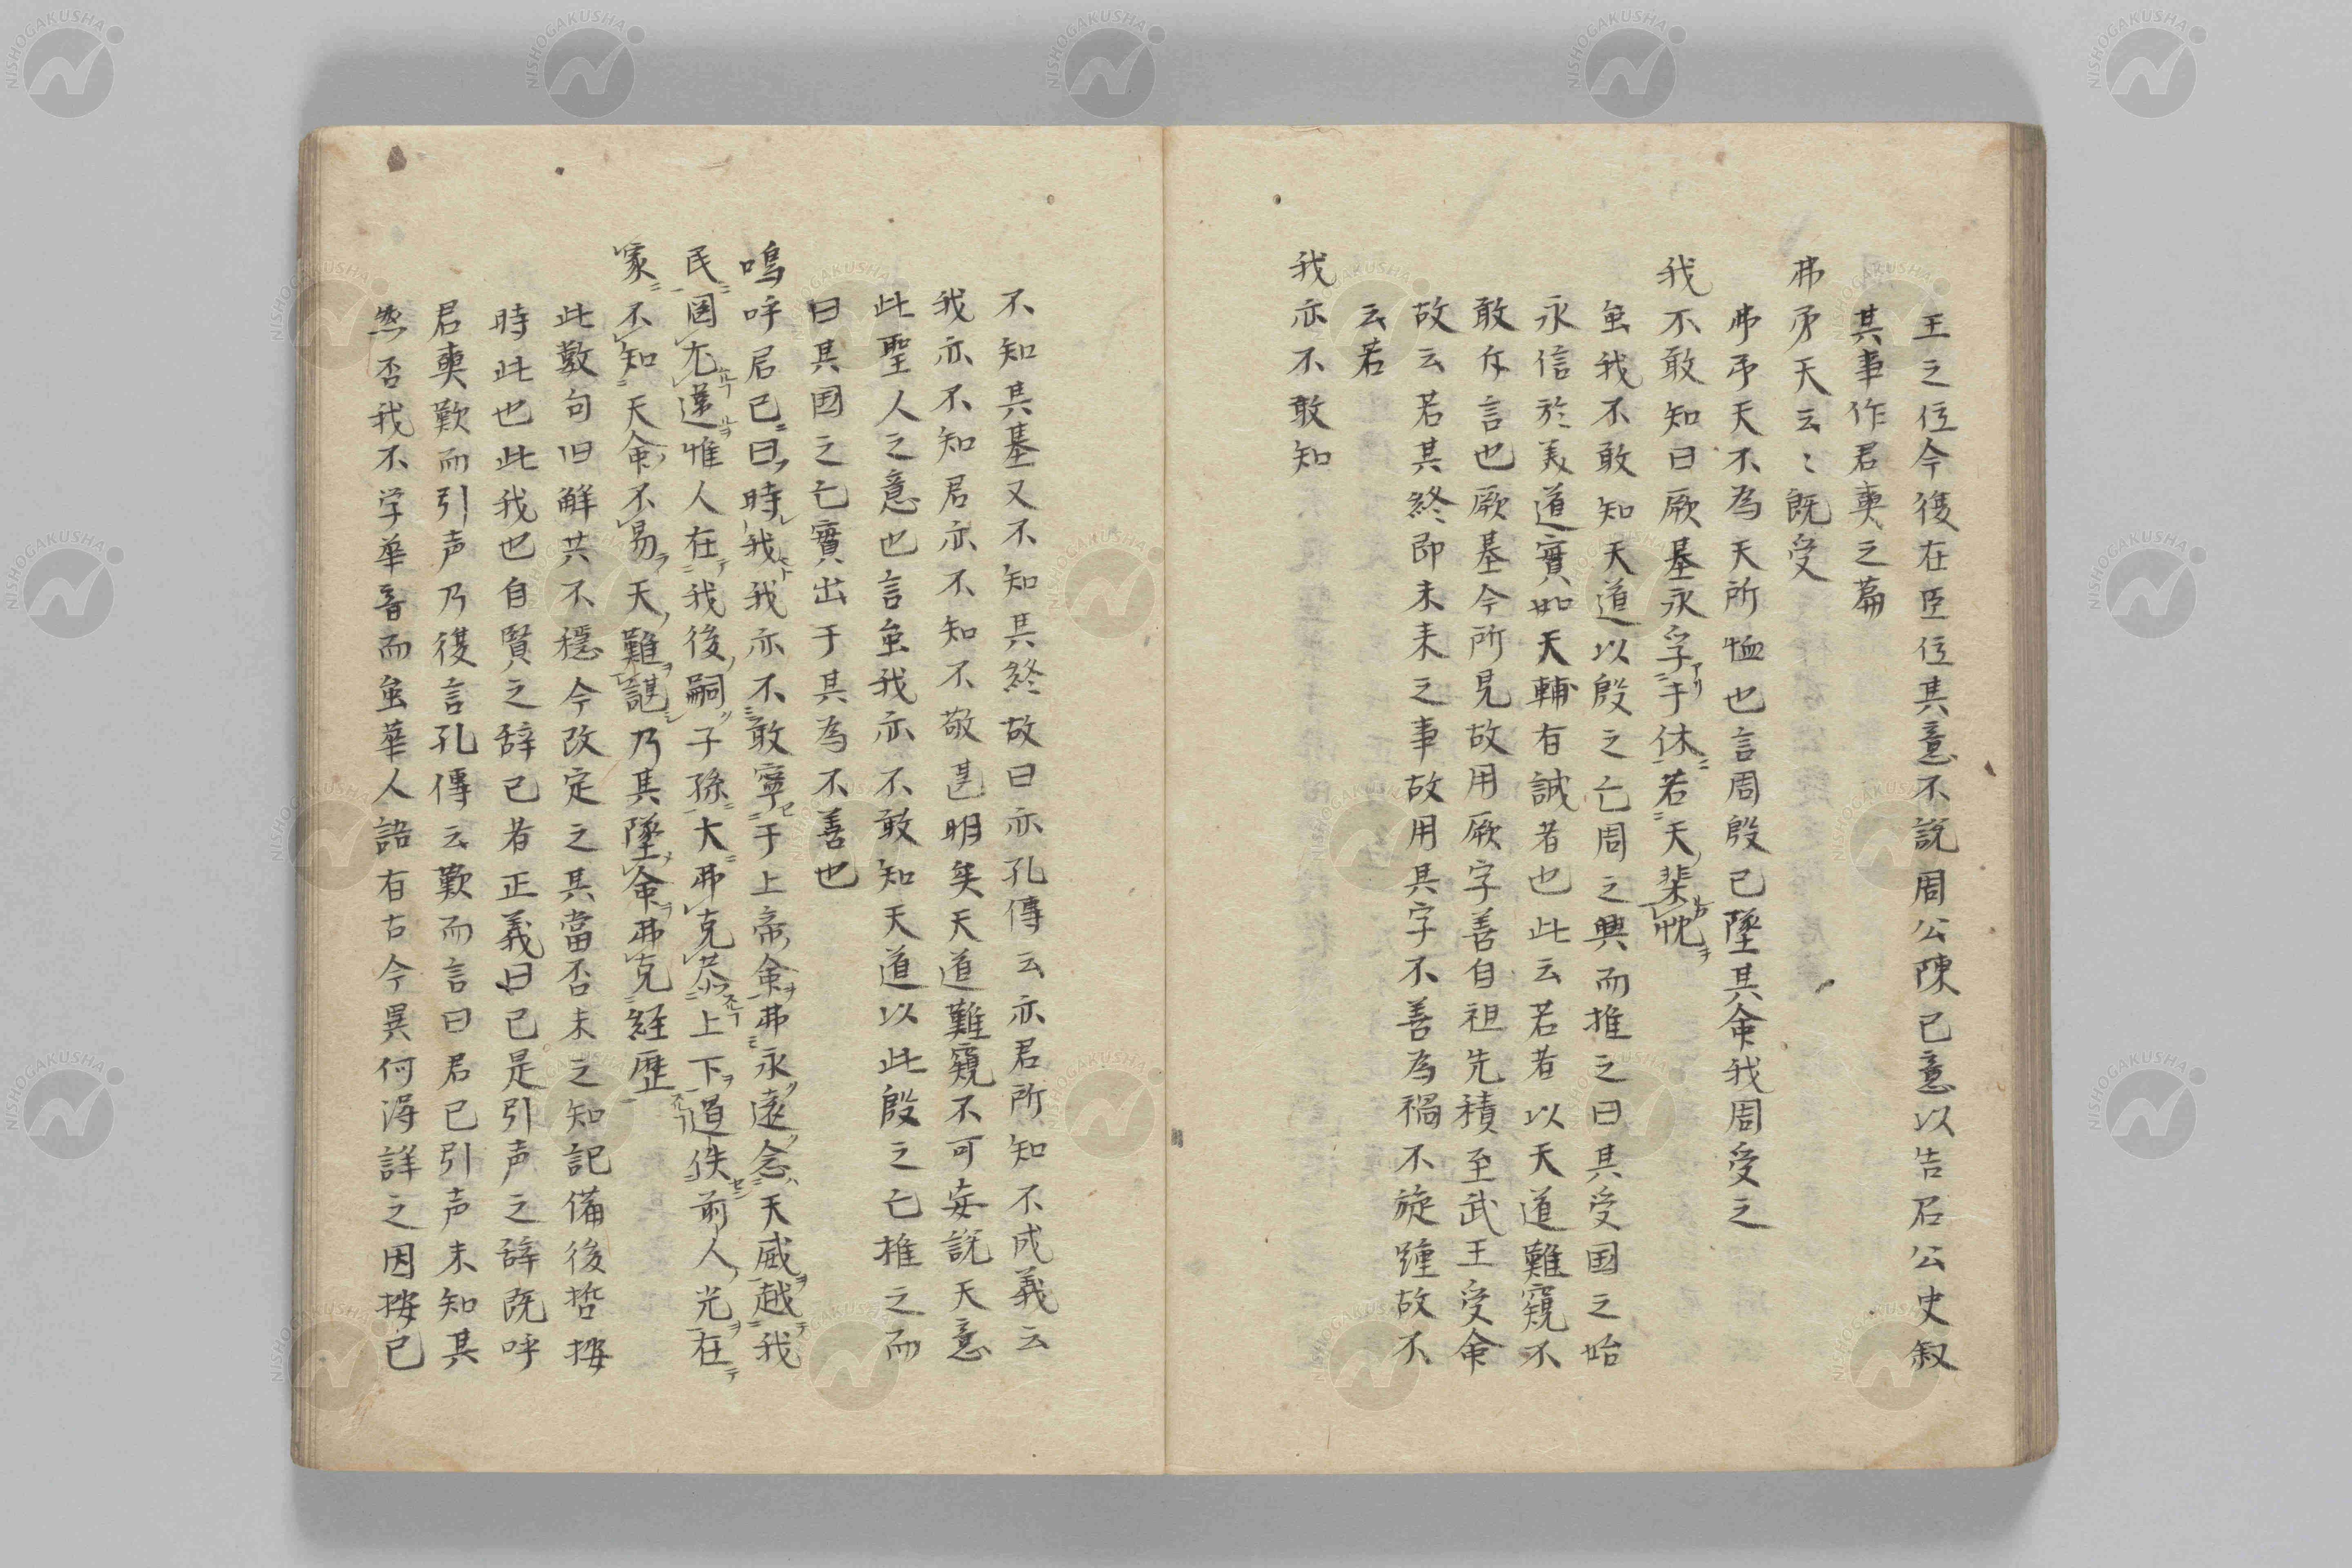 王之位今復在臣位其意不説周公陳己意以告君公史叙
其事作君奭之篇
弗弔天云〻既受
弗弔天不為天所恤也言周殷已墜其命我周受之
我不敢知曰厥基永孚于休若天棐忱
虽我不敢知天道以殷之亡周之興而推之曰其受国之始
永信於美道實如天輔有誠者也此云若者以天道難窺不
敢斥言也厥基今所見故用厥字善自祖先積至武王受命
故云若其終即未来之事故用其字不善為禍不旋踵故不
云若
我亦不敢知
不知其基又不知其終故曰亦孔傳云亦君所知不成義云
我亦不知君亦不知不敬甚明矣天道難窺不可妄説天意
此聖人之意也言虽我亦不敢知天道以此殷之亡推之而
曰其国之亡實出于其為不善也
嗚呼君已曰時我我亦不敢寧于上帝命弗永遠念天威越我
民罔尤違惟人在我後嗣子孫大弗克恭上下遏佚前人光在
家不知天命不易天難諶乃其墜命弗克経歴
此數句旧解共不穏今改定之其當否未之知記備後哲按
時此也此我也自賢之辞已者正義曰已是引声之辞既呼
君奭歎而引声乃復言孔傳云歎而言曰君已引声未知其
然否我不学華音而虽華人語有古今異何得詳之因按已